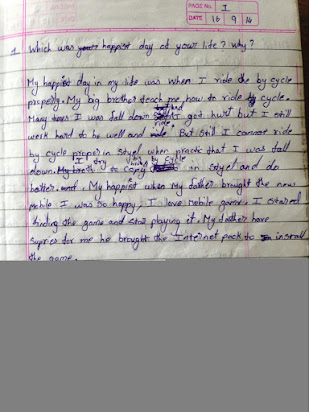 PAGE No. I
DATE 16 9 14
1 Which was your happist day of your life ? Why ?
My happist day in my life was when I ride by cycle
properly. My big brother teach me how to ride by cycle.
Many times I was fall down I got hurt but I still
work hard to be well and ride. But Still I cannot ride
by cycle proper in Styel when practic that I was fall
down. I try to Copy in Styel and do
better. and. My happist when My father brought the new
mobile I was so happy, I love mobile game. I stared
finding the game and star playing it. My father have
suprics for me he brought the Internet pack to install
the game.